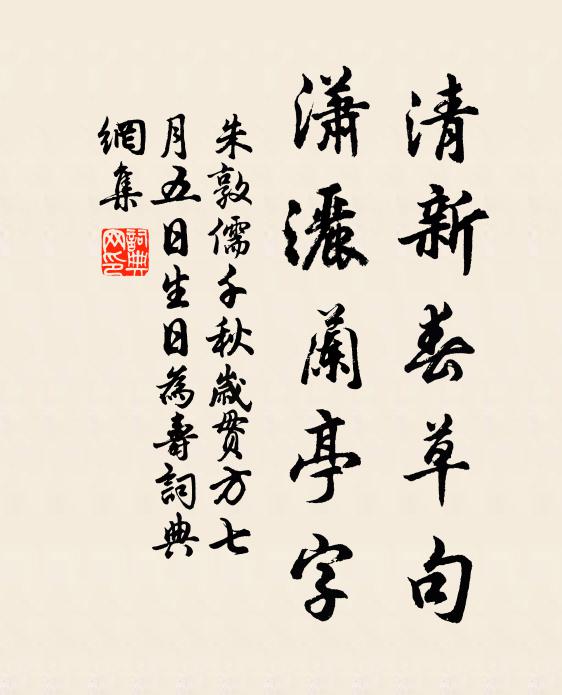 清新春草句
瀟灑蘭亭字
朱敦儒千秋歲貫方七
月五日生日為壽詞典
網集
詞典網印